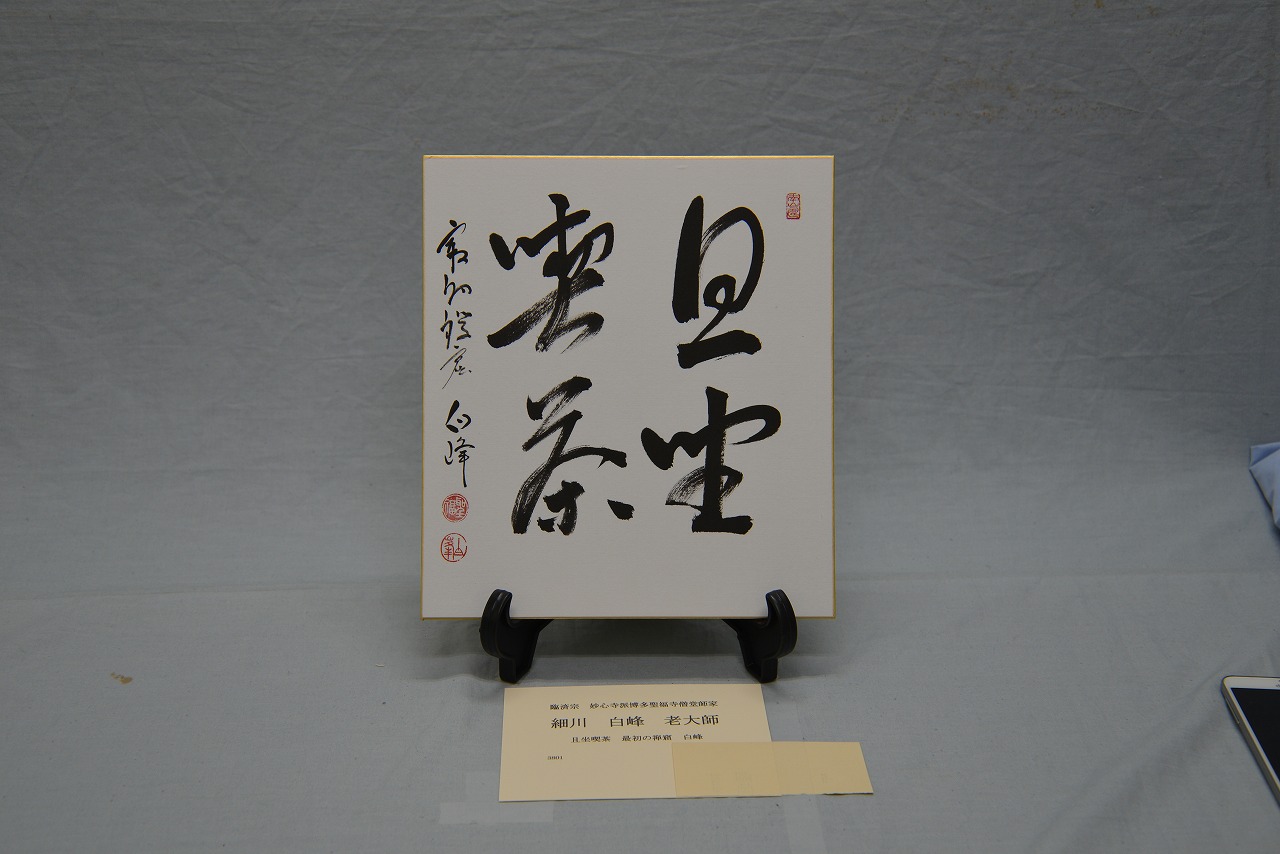 且坐
喫茶
最初禅窟 白峰
臨済宗 妙心寺派博多聖福寺僧堂師家
細川 白峰 老大師
且坐喫茶 最初の禅窟 白峰
3801